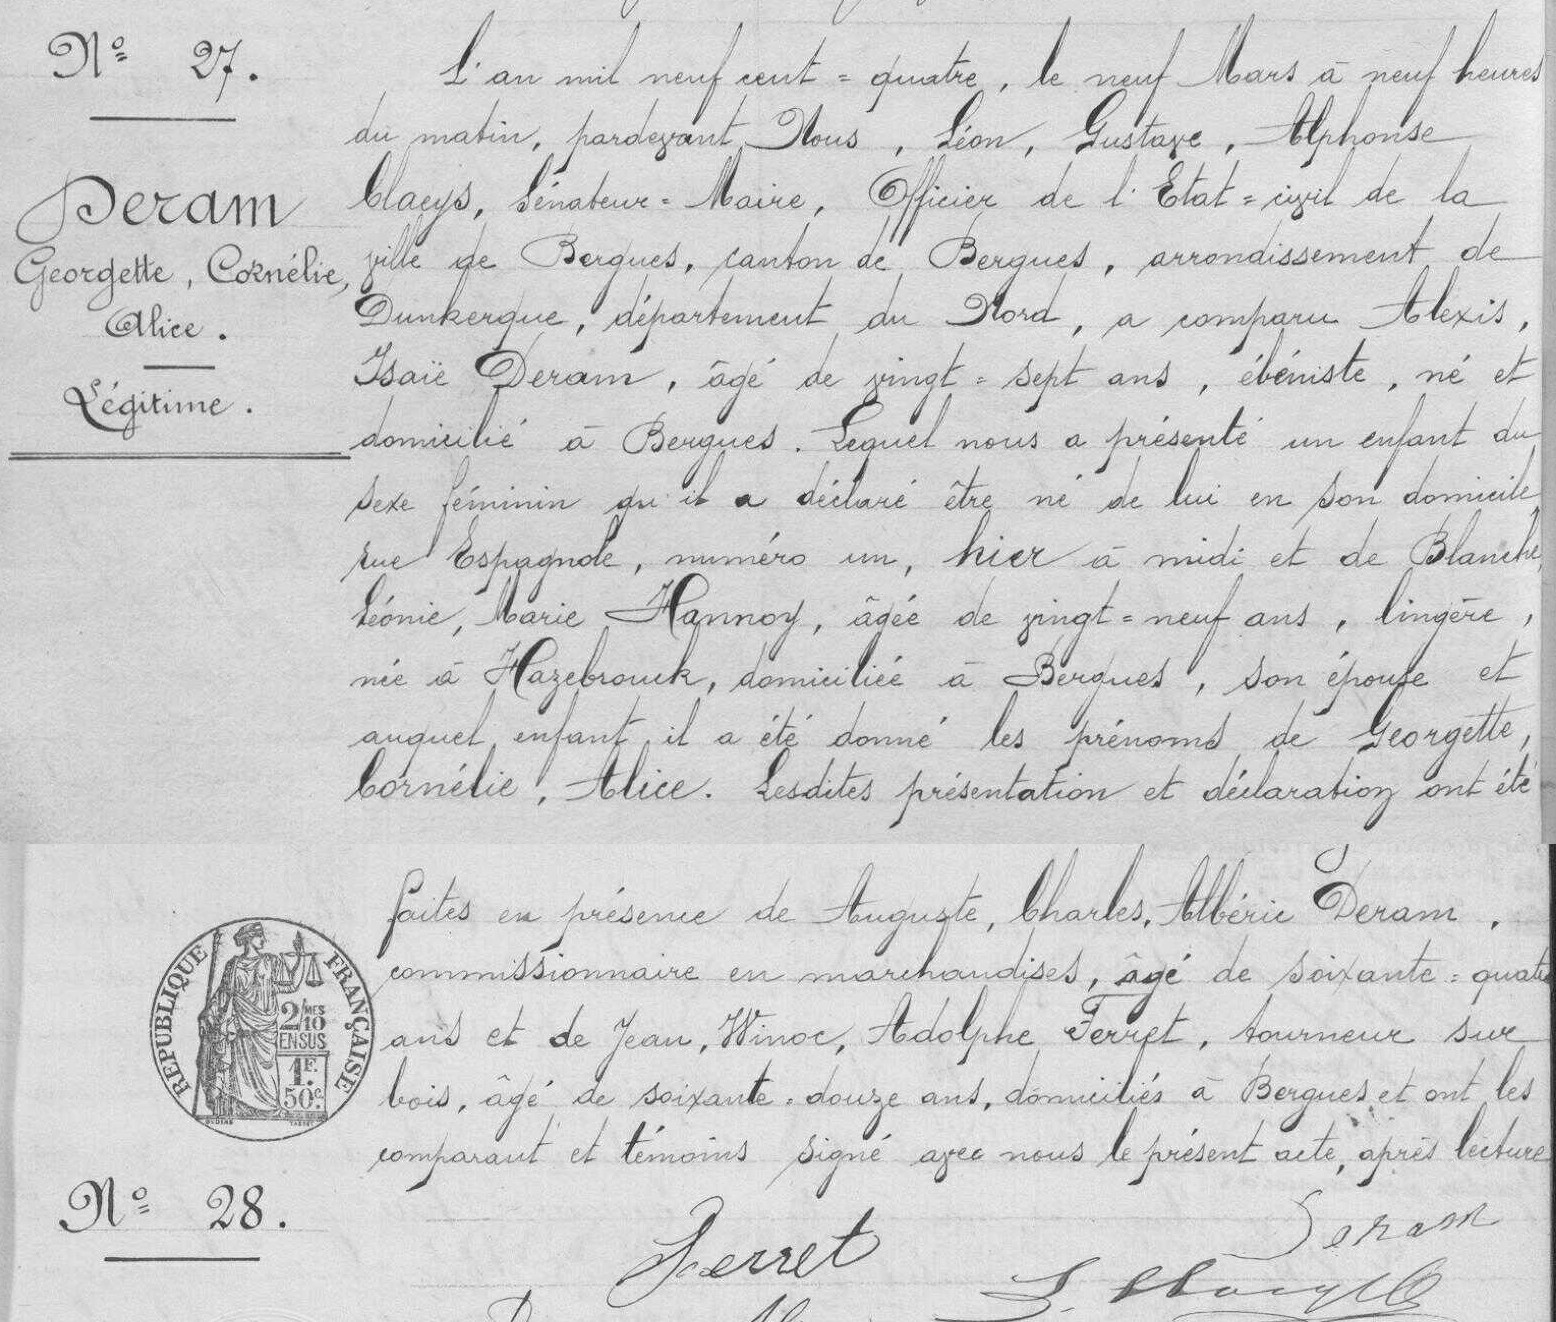 Nº 27.
Deram
Georgette, Cornélie,
Alice.
Légitime.
L'an mil neuf cent=quatre, le neuf Mars à neuf heures
du matin, pardevant Nous, Léon, Gustave, Alphonse
Claeys, Sénateur=Maire, Officier de l'Etat=civil de la
ville de Bergues, canton de Bergues, arrondissement de
Dunkerque, département du Nord, a comparu Alexis,
Isaïe Deram, âgé de vingt=sept ans, ébéniste, né et
domicilié à Bergues. Lequel nous a présenté un enfant du
sexe féminin qu'il a déclaré être né de lui en son domicile
rue Espagnole, numéro un, hier à midi et de Blanche,
Léonie, Marie Hannoy, âgée de vingt=neuf ans, lingère,
née à Hazebrouck, domiciliée à Bergues, son épouse et
auquel enfant il a été donné les prénoms de Georgette,
Cornélie, Alice. Lesdites présentation et déclaration ont été
faites en présence de Auguste, Charles, Albéric Deram,
commissionnaire en marchandises, âgé de soixante=quatre
ans et de Jean, Winoc, Adolphe Ferret, tourneur sur
bois, âgé de soixante=douze ans, domiciliés à Bergues et ont les
comparant et témoins signé avec nous le présent acte, après lecture
RÉPUBLIQUE FRANÇAISE
2/MES
10
EN SUS
1F.
50c.
Nº 28.
Ferret
Deram
L. Claeys